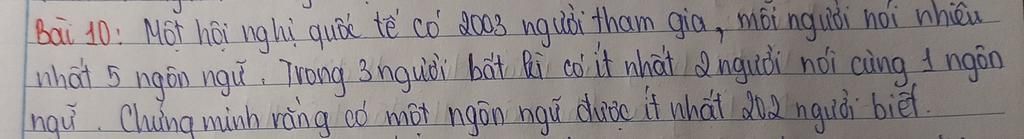 Bài 10: Một hội nghị quốc tế có 2003 người tham gia, mỗi người nói nhiều
nhất 5 ngôn ngữ. Trong 3 người bất kì có ít nhất 2 người nói cùng 1 ngôn
ngữ. Chứng minh rằng có một ngôn ngữ được ít nhất 202 người biết.